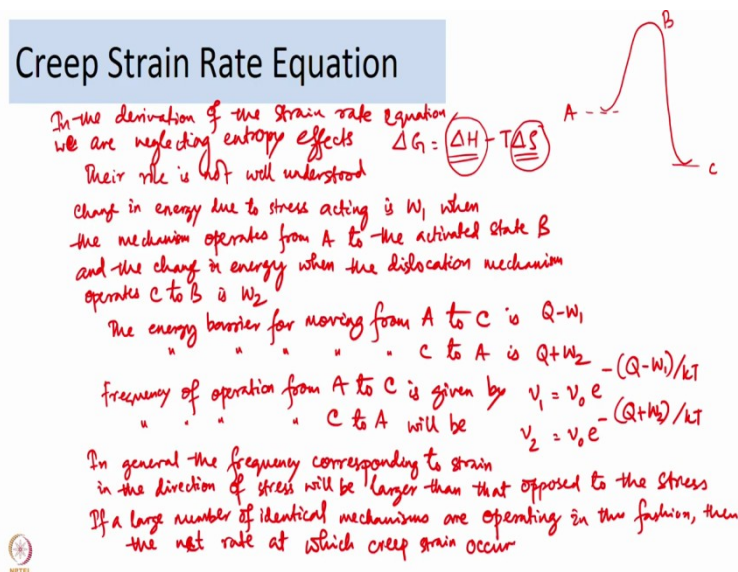 Creep Strain Rate Equation
B
A
C
In the derivation of the strain rate equation
we are neglecting entropy effects ΔG = ΔH - TΔS
Their role is not well understood
change in energy due to stress acting is W₁ when
the mechanism operates from A to the activated state B
and the change in energy when the dislocation mechanism
operates C to B is W₂
The energy barrier for moving from A to C is Q-W₁
" " " " " C to A is Q+W₂
Frequency of operation from A to C is given by ν₁ = ν₀ e^-(Q-W₁)/kT
" " " " C to A will be ν₂ = ν₀ e^-(Q+W₂)/kT
In general the frequency corresponding to strain
in the direction of stress will be larger than that opposed to the stress
If a large number of identical mechanisms are operating in this fashion, then
the net rate at which creep strain occur
NPTEL